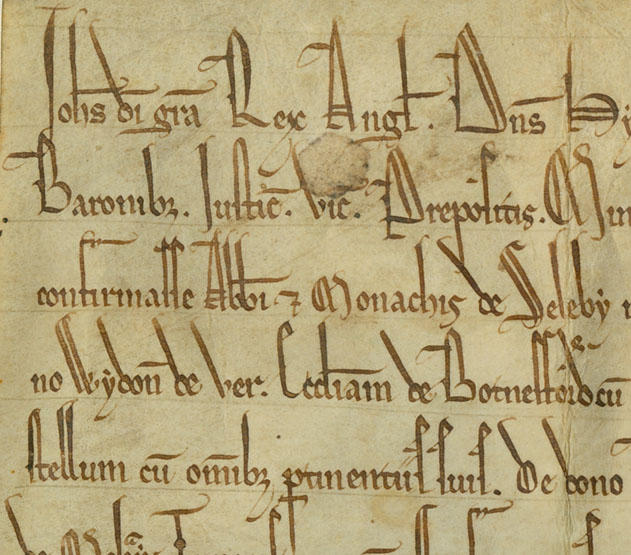 Johs di gra Rex Angl. Dns Hy
Baronibz. Justic. Vic. Prepositis. Min
confirmasse Abbi ⁊ Monachis de Seleby
no Wydon de Ver. Eccliam de Botnesford cu
stellum cu omibz ptinentiis suis. De dono
de